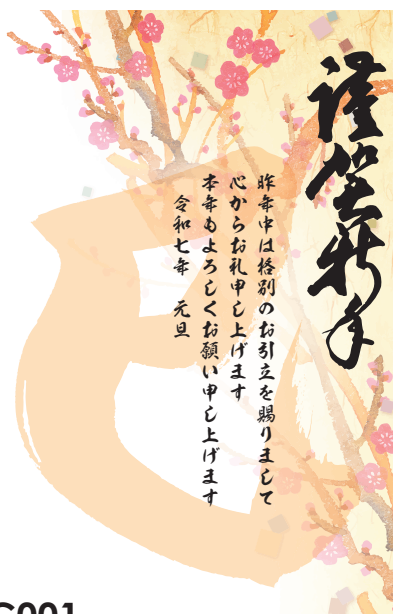 謹賀新年
昨年中は格別のお引立を賜りまして
心からお礼申し上げます
本年もよろしくお願い申し上げます
令和七年　元旦
巳